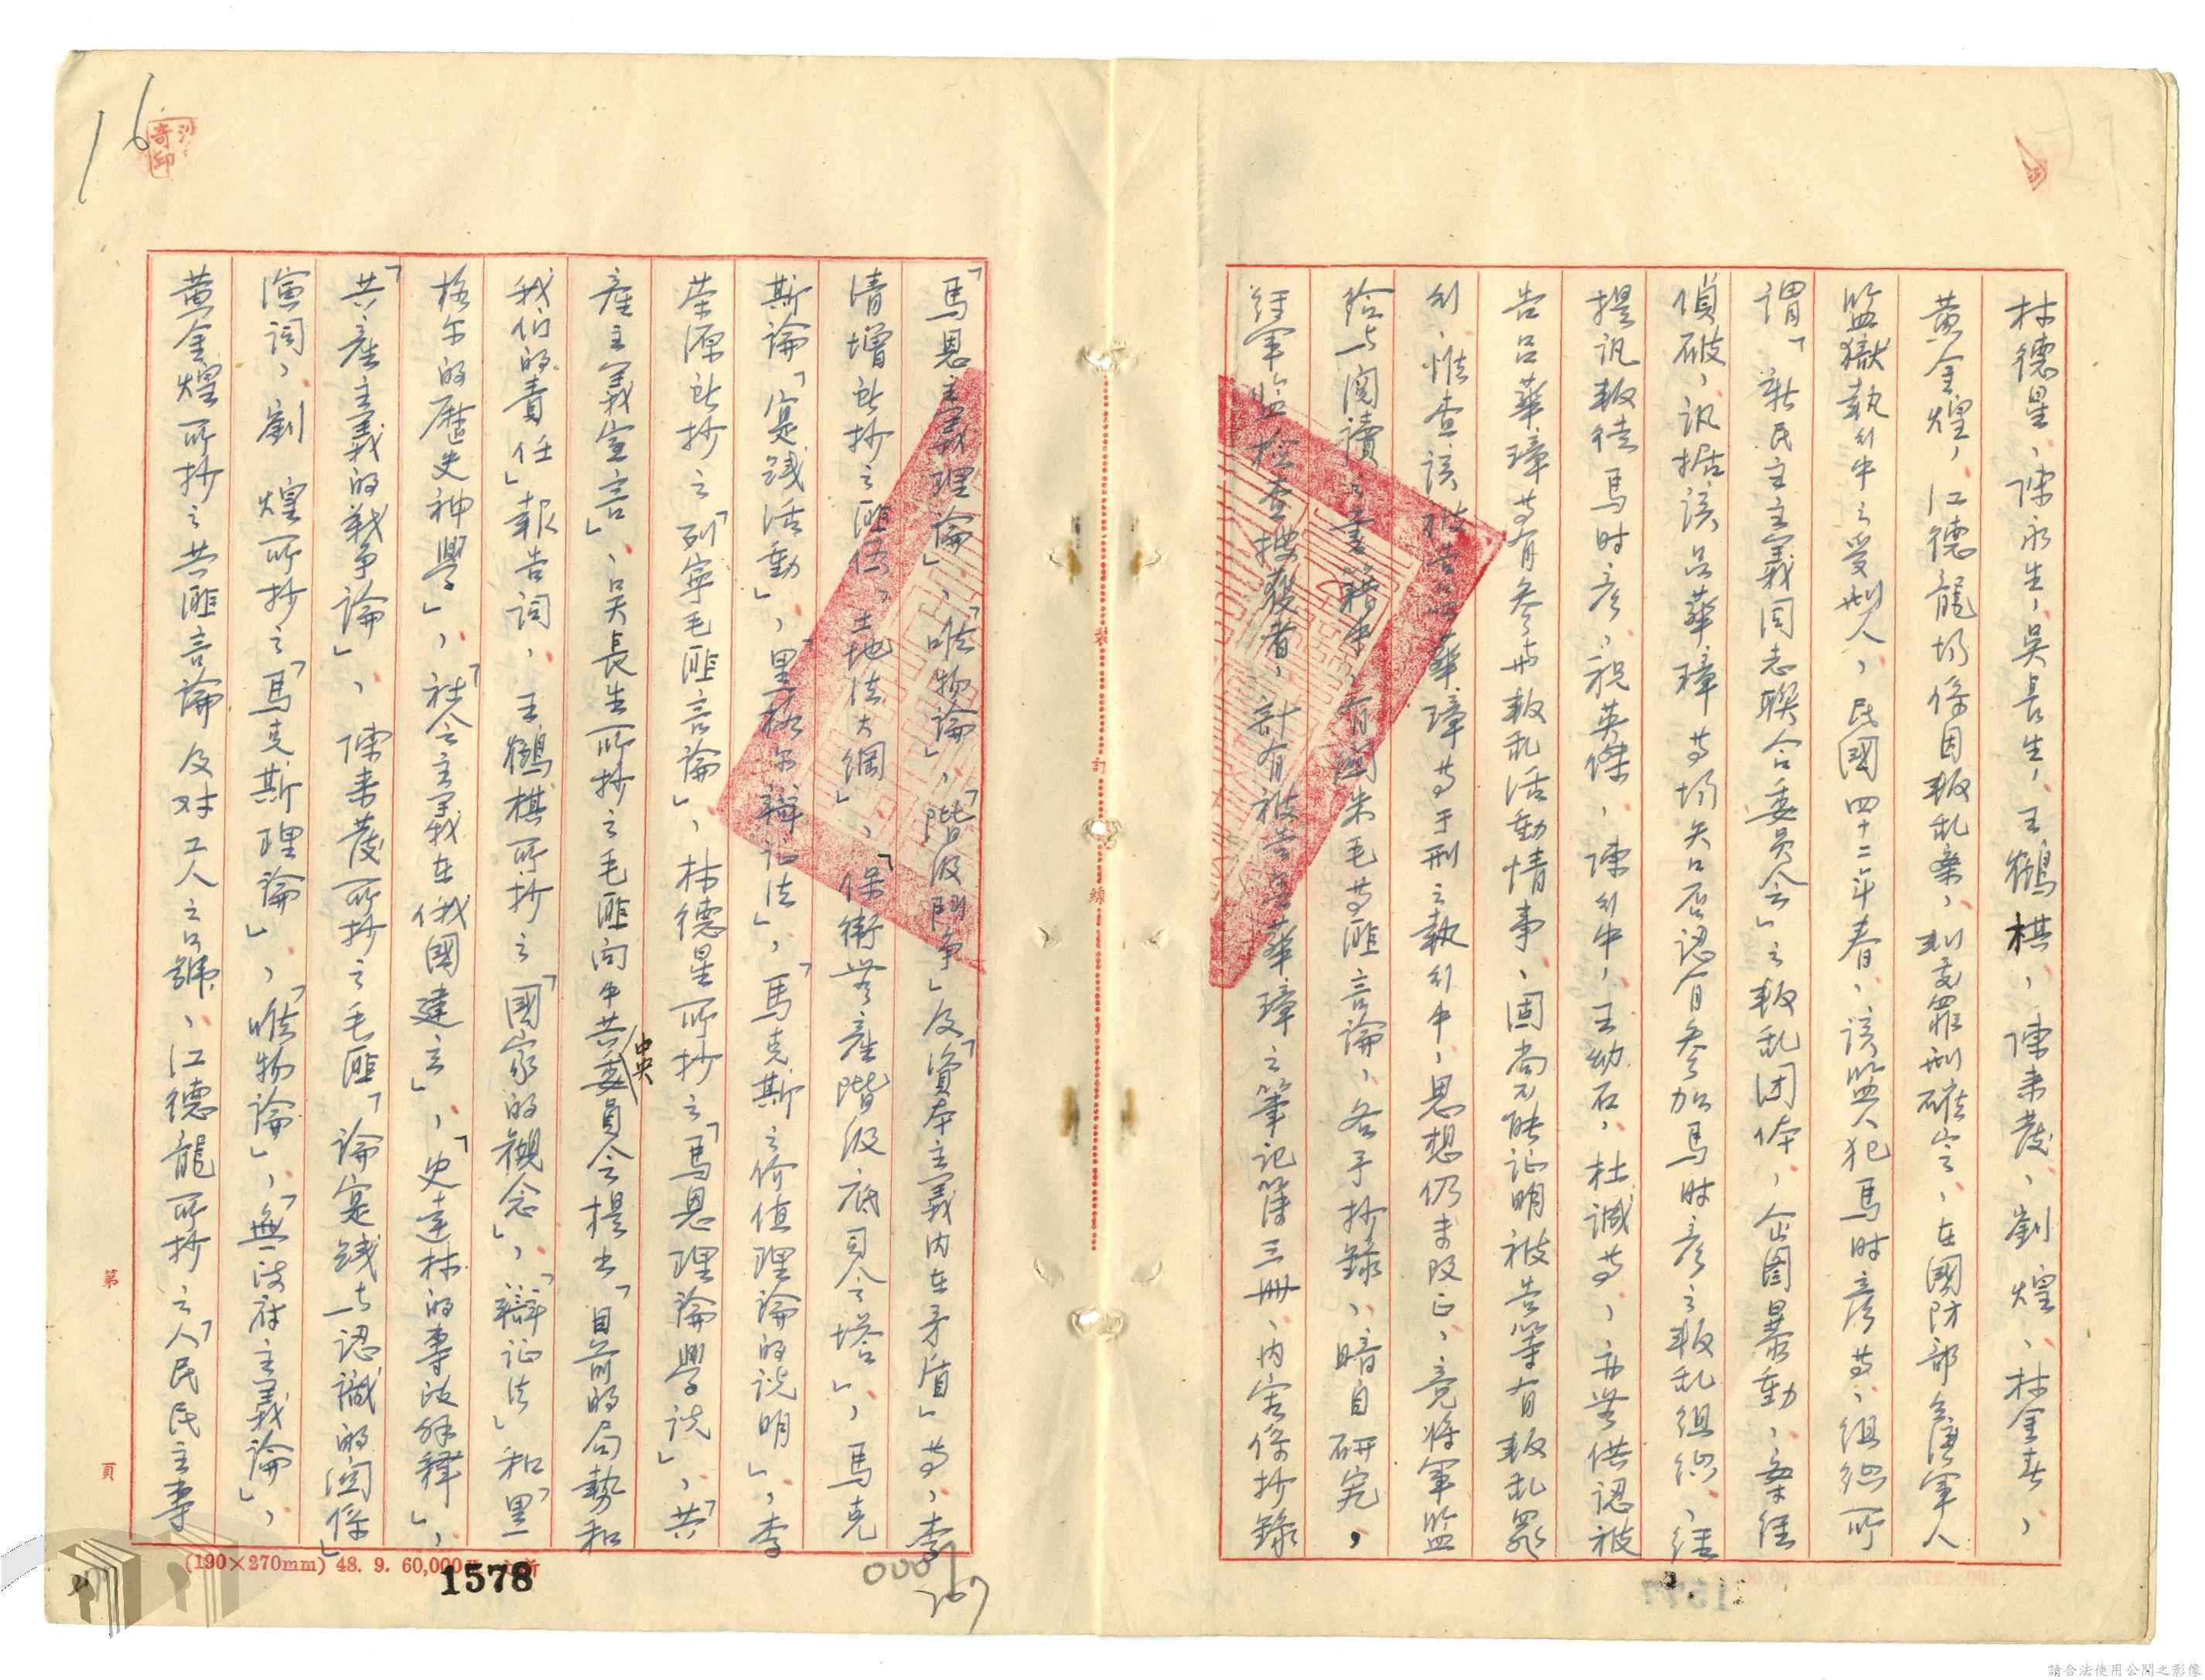 林德星、陳永生、吳長生、王鶴棋、陳来發、劉煌、林金春、
黃金煌、江德龍均係因叛乱案、判處罪刑確定、在國防部台灣軍人
監獄執行中之受刑人、民國四十二年春、該監人犯馬时彥等、組織所
謂「新民主主義同志聯合委員会」之叛乱团体、企图暴動、案経
偵破、訊据該呂華璋等均矢口否認有參加馬时彥之叛乱組織、経
提訊叛徒馬时彥、祝英傑、陳行中、王幼石、杜誠等、亦無供認被
告呂華璋等有參与叛乱活動情事、固尚无能証明被告等有叛乱罪
行、惟查該被告呂華璋等于刑之執行中、思想仍未改正、竟将軍監
給与阅讀之書籍中、有関朱毛等匪言論、各予抄錄、暗自研究、
経軍监檢查搜獲者、計有被告呂華璋之筆記簿三冊、内容係抄錄
「馬恩主義理論」、「唯物論」、「階级鬥争」及「資本主義内在矛盾」等、李
清增所抄之匪伪「土地法大綱」、「保衛無產階级底司令塔」、馬克
斯論「寔践活動」、「黑格尔辯証法」、「馬克斯之价值理論的说明」、李
荣源所抄之「列寧毛匪言論」、林德星所抄之「馬恩理論學说」、「共
產主義宣言」、吳長生所抄之毛匪向中共中央委員会提出「目前的局勢和
我们的責任」報告词、王鶴棋所抄之「國家的觀念」、「辯证法」和「黑
格尔的歷史神學」、「社会主義在俄國建立」、「史達林的專政解釋」、
「共產主義的戰争論」、陳来發所抄之毛匪「論寔践与認識的関係」
演词、劉煌所抄之「馬克斯理論」、「唯物論」、「無政府主義論」、
黃金煌所抄之共匪言論及对工人之口號、江德龍所抄之「人民民主專
16
第 頁
(190×270mm) 48. 9. 60,000
1578
000
267
裝
訂
線
請合法使用公開之影像